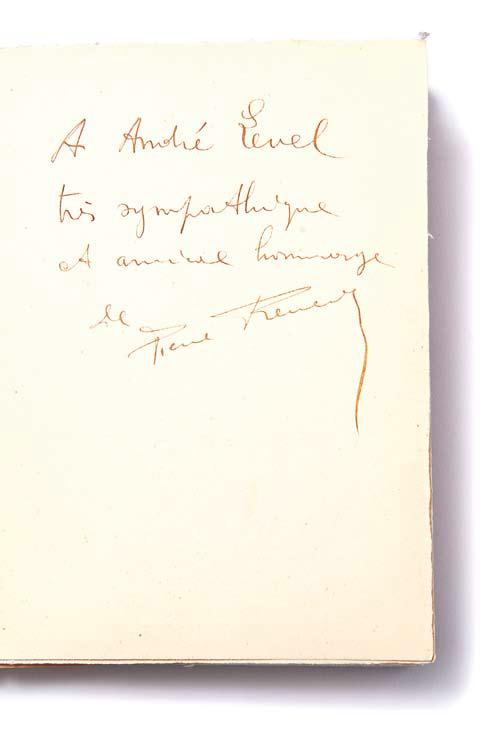 A André Level
très sympathique
et amical hommage
de
Pierre Reverdy